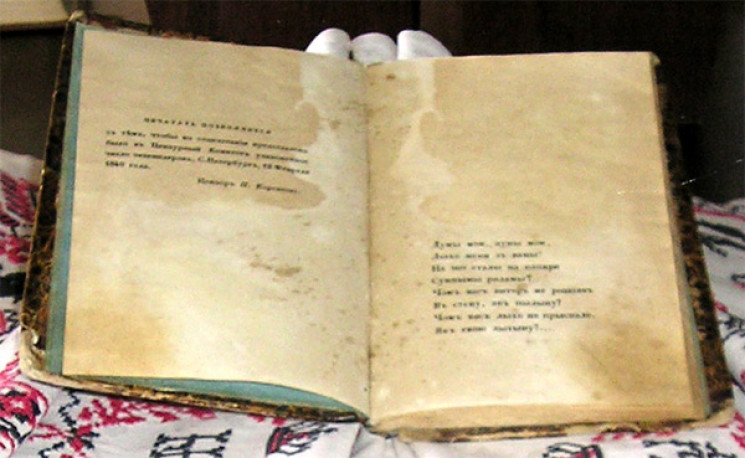 ПЕЧАТАТЬ ПОЗВОЛЯЕТСЯ
съ тѣмъ, чтобы по отпечатаніи представлено
было въ Ценсурный Комитетъ узаконенное
число экземпляровъ. С. Петербургъ, 12 Февраля
1840 года.
Ценсоръ П. Корсаковъ.
Думы мои, думы мои,
Лыхо мени зъ вами!
На що сталы на папири
Сумнымы рядамы?...
Чомъ васъ витеръ не розвіявъ
Въ степу, якъ пылыну?
Чомъ васъ лыхо не прыспало,
Якъ свою дытыну?...